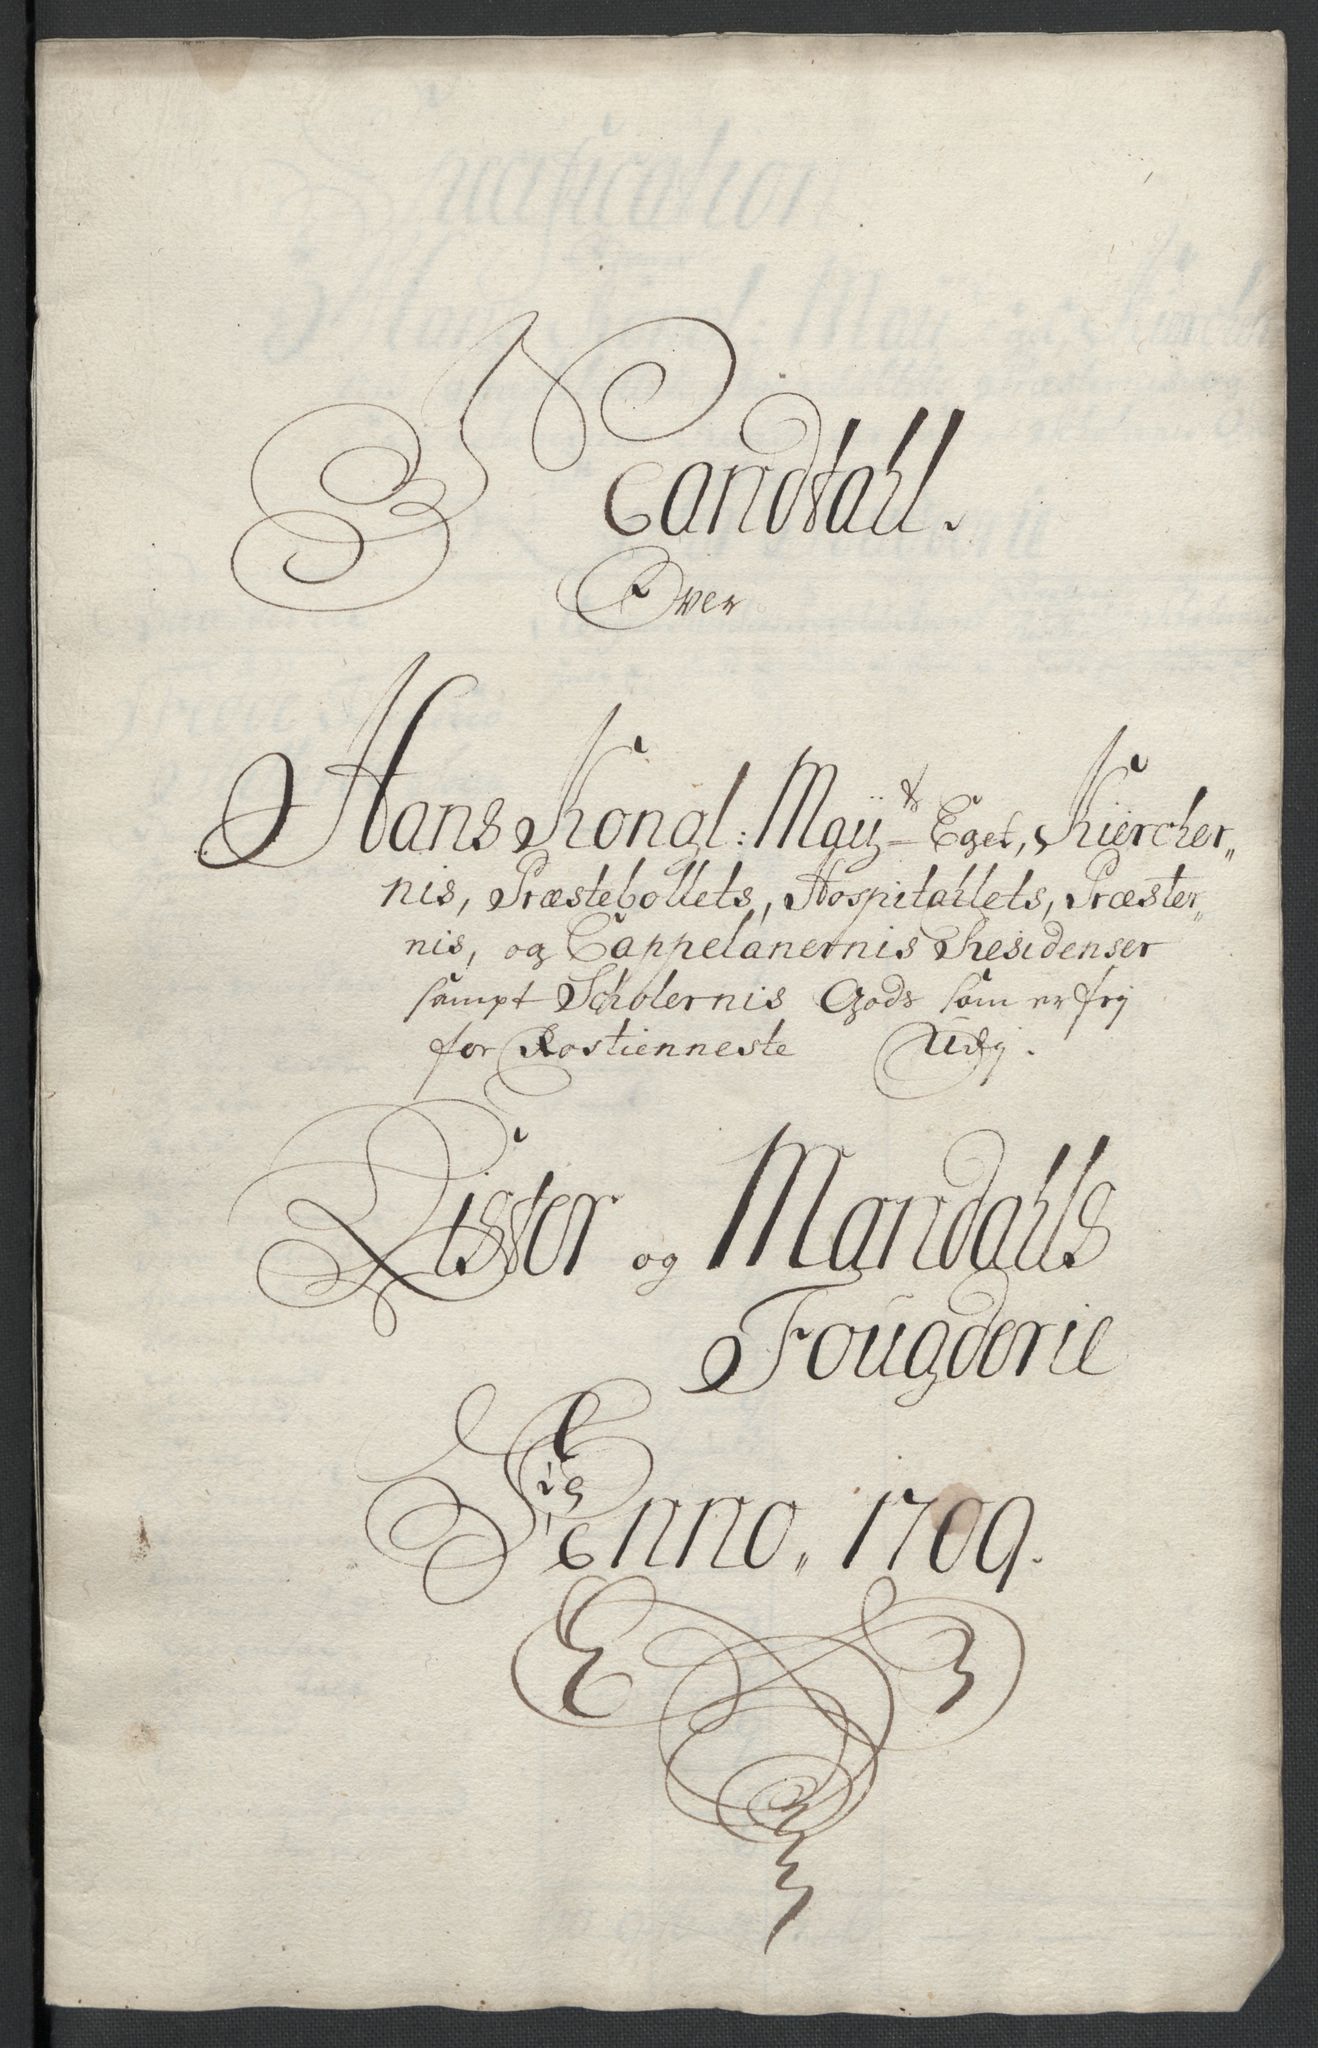 Mandtall.
Over
Hans Kongl: Maytz Eget, Kiercher„
nis, Præstebollets, Hospitahlets, Præster„
nis, og Cappelanernis Residenser
sampt Scholernis Gods som er frj
for Rostienneste Udj.
Lister og Mandahls
Fougderie
Anno„ 1709.